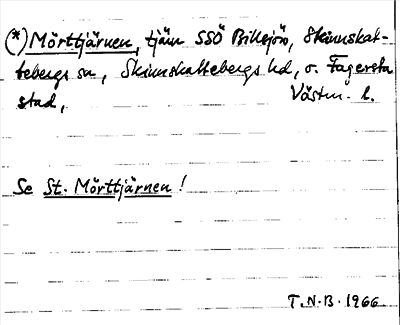 (*) Mörttjärnen, tjärn SSÖ Billsjön, Skinnskat-
tebergs sn, Skinnskattebergs hd, o. Fagersta
stad, Västm. l.
Se St. Mörttjärnen!
T.N.B. 1966